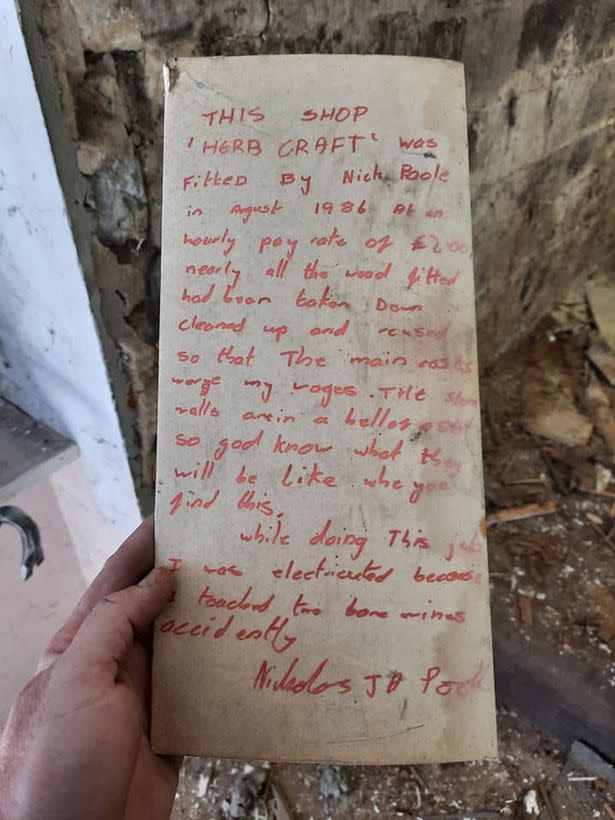 THIS SHOP
'HERB CRAFT' was
Fitted By Nick Poole
in August 1986 At an
hourly pay rate of £2.00
nearly all the wood fitted
had been taken Down
cleaned up and reused
so that The main costs
warge my wages. THE stone
walls are in a
so god know what they
will be like whe you
find this.
while doing This job
I was electricuted because
I touched two bare wires
accidently
Nickolas J Poole